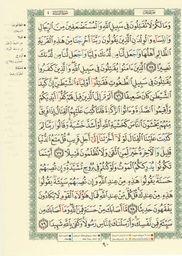 وَمَا لَكُمْ لَا تُقَاتِلُونَ فِي سَبِيلِ اللَّهِ وَالْمُسْتَضْعَفِينَ مِنَ الرِّجَالِ
وَالنِّسَاءِ وَالْوِلْدَانِ الَّذِينَ يَقُولُونَ رَبَّنَا أَخْرِجْنَا مِنْ هَٰذِهِ الْقَرْيَةِ
الظَّالِمِ أَهْلُهَا وَاجْعَل لَّنَا مِن لَّدُنكَ وَلِيًّا وَاجْعَل لَّنَا مِن لَّدُنكَ
نَصِيرًا ٧٥ الَّذِينَ آمَنُوا يُقَاتِلُونَ فِي سَبِيلِ اللَّهِ وَالَّذِينَ كَفَرُوا
يُقَاتِلُونَ فِي سَبِيلِ الطَّاغُوتِ فَقَاتِلُوا أَوْلِيَاءَ الشَّيْطَانِ إِنَّ كَيْدَ
الشَّيْطَانِ كَانَ ضَعِيفًا ٧٦ أَلَمْ تَرَ إِلَى الَّذِينَ قِيلَ لَهُمْ كُفُّوا
أَيْدِيَكُمْ وَأَقِيمُوا الصَّلَاةَ وَآتُوا الزَّكَاةَ فَلَمَّا كُتِبَ عَلَيْهِمُ الْقِتَالُ
إِذَا فَرِيقٌ مِّنْهُمْ يَخْشَوْنَ النَّاسَ كَخَشْيَةِ اللَّهِ أَوْ أَشَدَّ خَشْيَةً وَقَالُوا رَبَّنَا لِمَ
كَتَبْتَ عَلَيْنَا الْقِتَالَ لَوْلَا أَخَّرْتَنَا إِلَىٰ أَجَلٍ قَرِيبٍ قُلْ مَتَاعُ الدُّنْيَا
قَلِيلٌ وَالْآخِرَةُ خَيْرٌ لِّمَنِ اتَّقَىٰ وَلَا تُظْلَمُونَ فَتِيلًا ٧٧ أَيْنَمَا
تَكُونُوا يُدْرِككُّمُ الْمَوْتُ وَلَوْ كُنتُمْ فِي بُرُوجٍ مُّشَيَّدَةٍ وَإِن تُصِبْهُمْ
حَسَنَةٌ يَقُولُوا هَٰذِهِ مِنْ عِندِ اللَّهِ وَإِن تُصِبْهُمْ سَيِّئَةٌ يَقُولُوا
هَٰذِهِ مِنْ عِندِكَ قُلْ كُلٌّ مِّنْ عِندِ اللَّهِ فَمَالِ هَٰؤُلَاءِ الْقَوْمِ لَا يَكَادُونَ
يَفْقَهُونَ حَدِيثًا ٧٨ مَّا أَصَابَكَ مِنْ حَسَنَةٍ فَمِنَ اللَّهِ وَمَا أَصَابَكَ مِن
سَيِّئَةٍ فَمِن نَّفْسِكَ وَأَرْسَلْنَاكَ لِلنَّاسِ رَسُولًا وَكَفَىٰ بِاللَّهِ شَهِيدًا ٧٩
٩٠